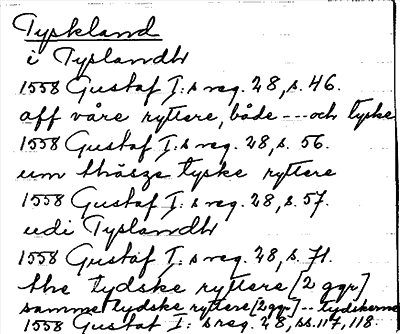 Tyskland
i Tyslandh
1558 Gustaf I:s reg. 28, s. 46.
aff våre ryttere, både --- och tyske
1558 Gustaf I:s reg. 28, s. 56.
um thäsze tyske ryttere
1558 Gustaf I:s reg. 28, s. 57.
udi Tyslandh
1558 Gustaf I:s reg. 28, s. 71.
the tydske ryttere [2 ggr]
samme tydske ryttere [2 ggr] -- tydskerne
1558 Gustaf I:s reg. 28, ss. 117, 118.